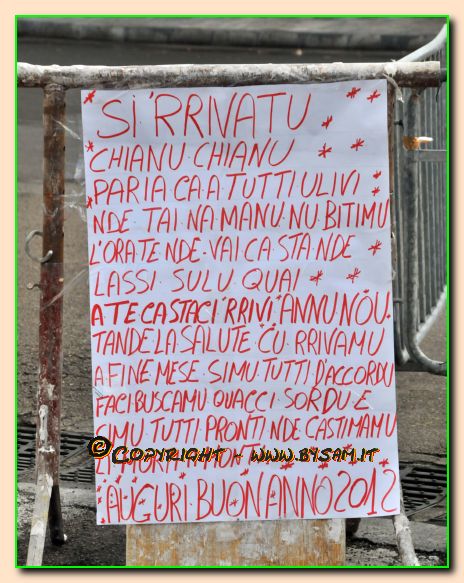 SI 'RRIVATU
CHIANU CHIANU
PARIA CA A TUTTI ULIVI
NDE TAI NA MANU. NU BITIMU
L'ORA TE NDE VAI CA STA NDE
LASSI SULU QUAI
A TE CA STACI 'RRIVI ANNU NOU.
TANDE LA SALUTE CU RRIVAMU
A FINE MESE. SIMU TUTTI D'ACCORDU
FACI BUSCAMU QUACCI SORDU E
SIMU TUTTI PRONTI NDE CASTIMAMU
© COPYRIGHT - WWW.BYSAM.IT
AUGURI BUON ANNO 2012